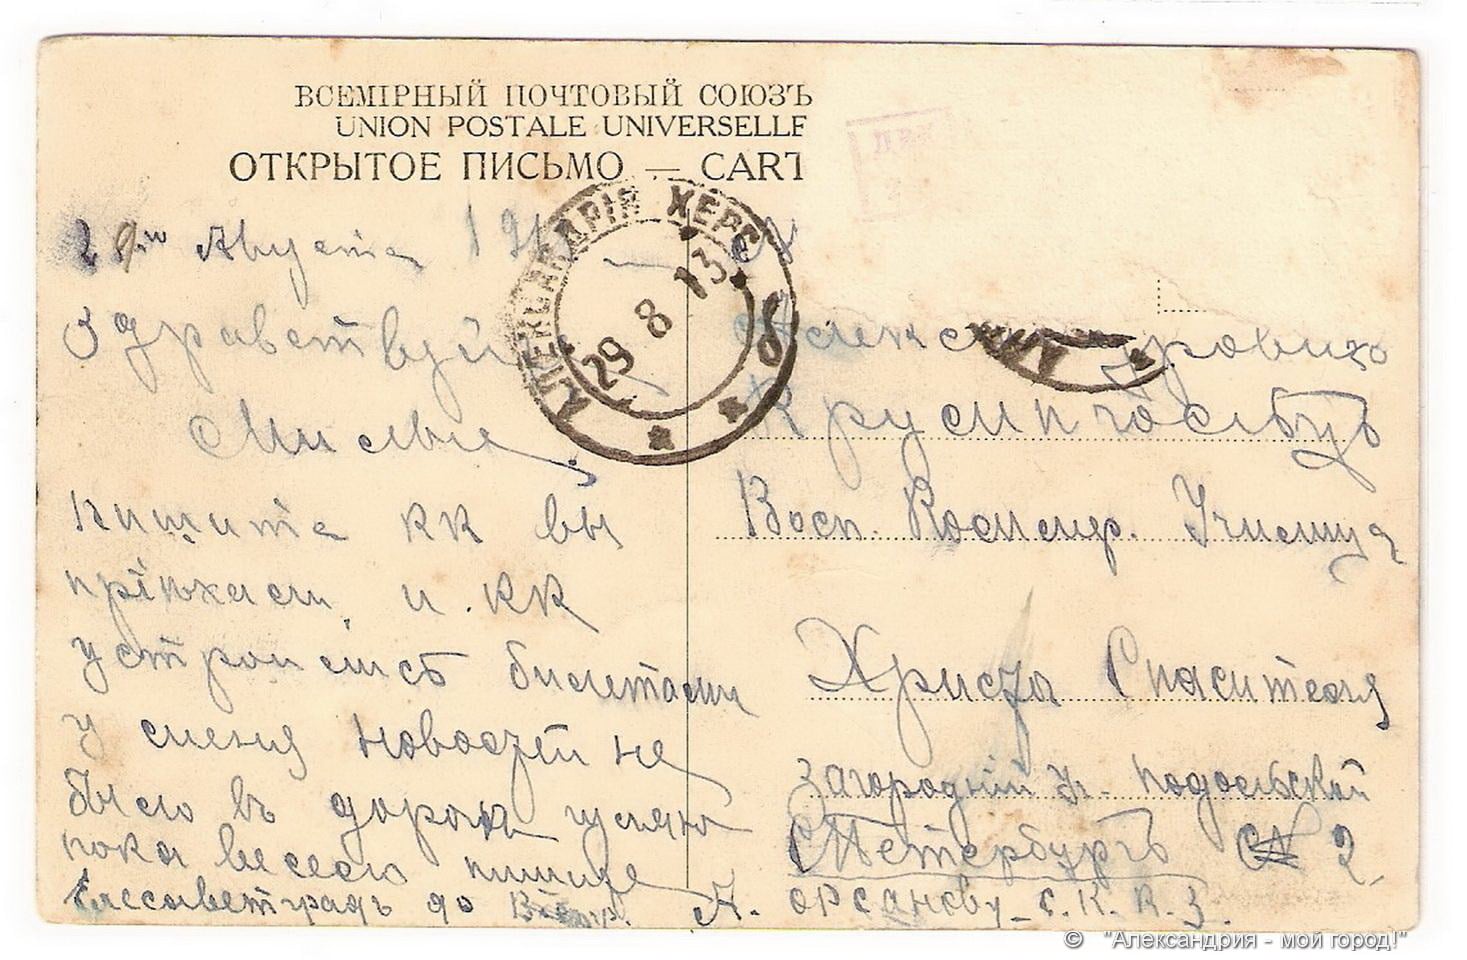 ВСЕМІРНЫЙ ПОЧТОВЫЙ СОЮЗЪ
UNION POSTALE UNIVERSELLE
ОТКРЫТОЕ ПИСЬМО — CART
АЛЕКСАНДРІЯ ХЕРС
29 8 13
29го Августа
Здравствуй
Милые
пишите кк вы
пріѣхали и кк
устроились билетами
у меня новостей не
было въ дороги гуляю
пока весело пишите
Елесаветградъ до
Восп. Учелища
Христа Спасителя
Загородній у. Подольский
СПетербургъ № 2
© "Александрия - мой город!"